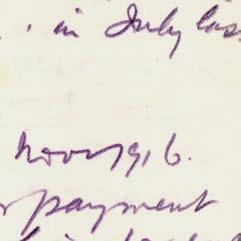 in July las
Nov 1916.
r payment